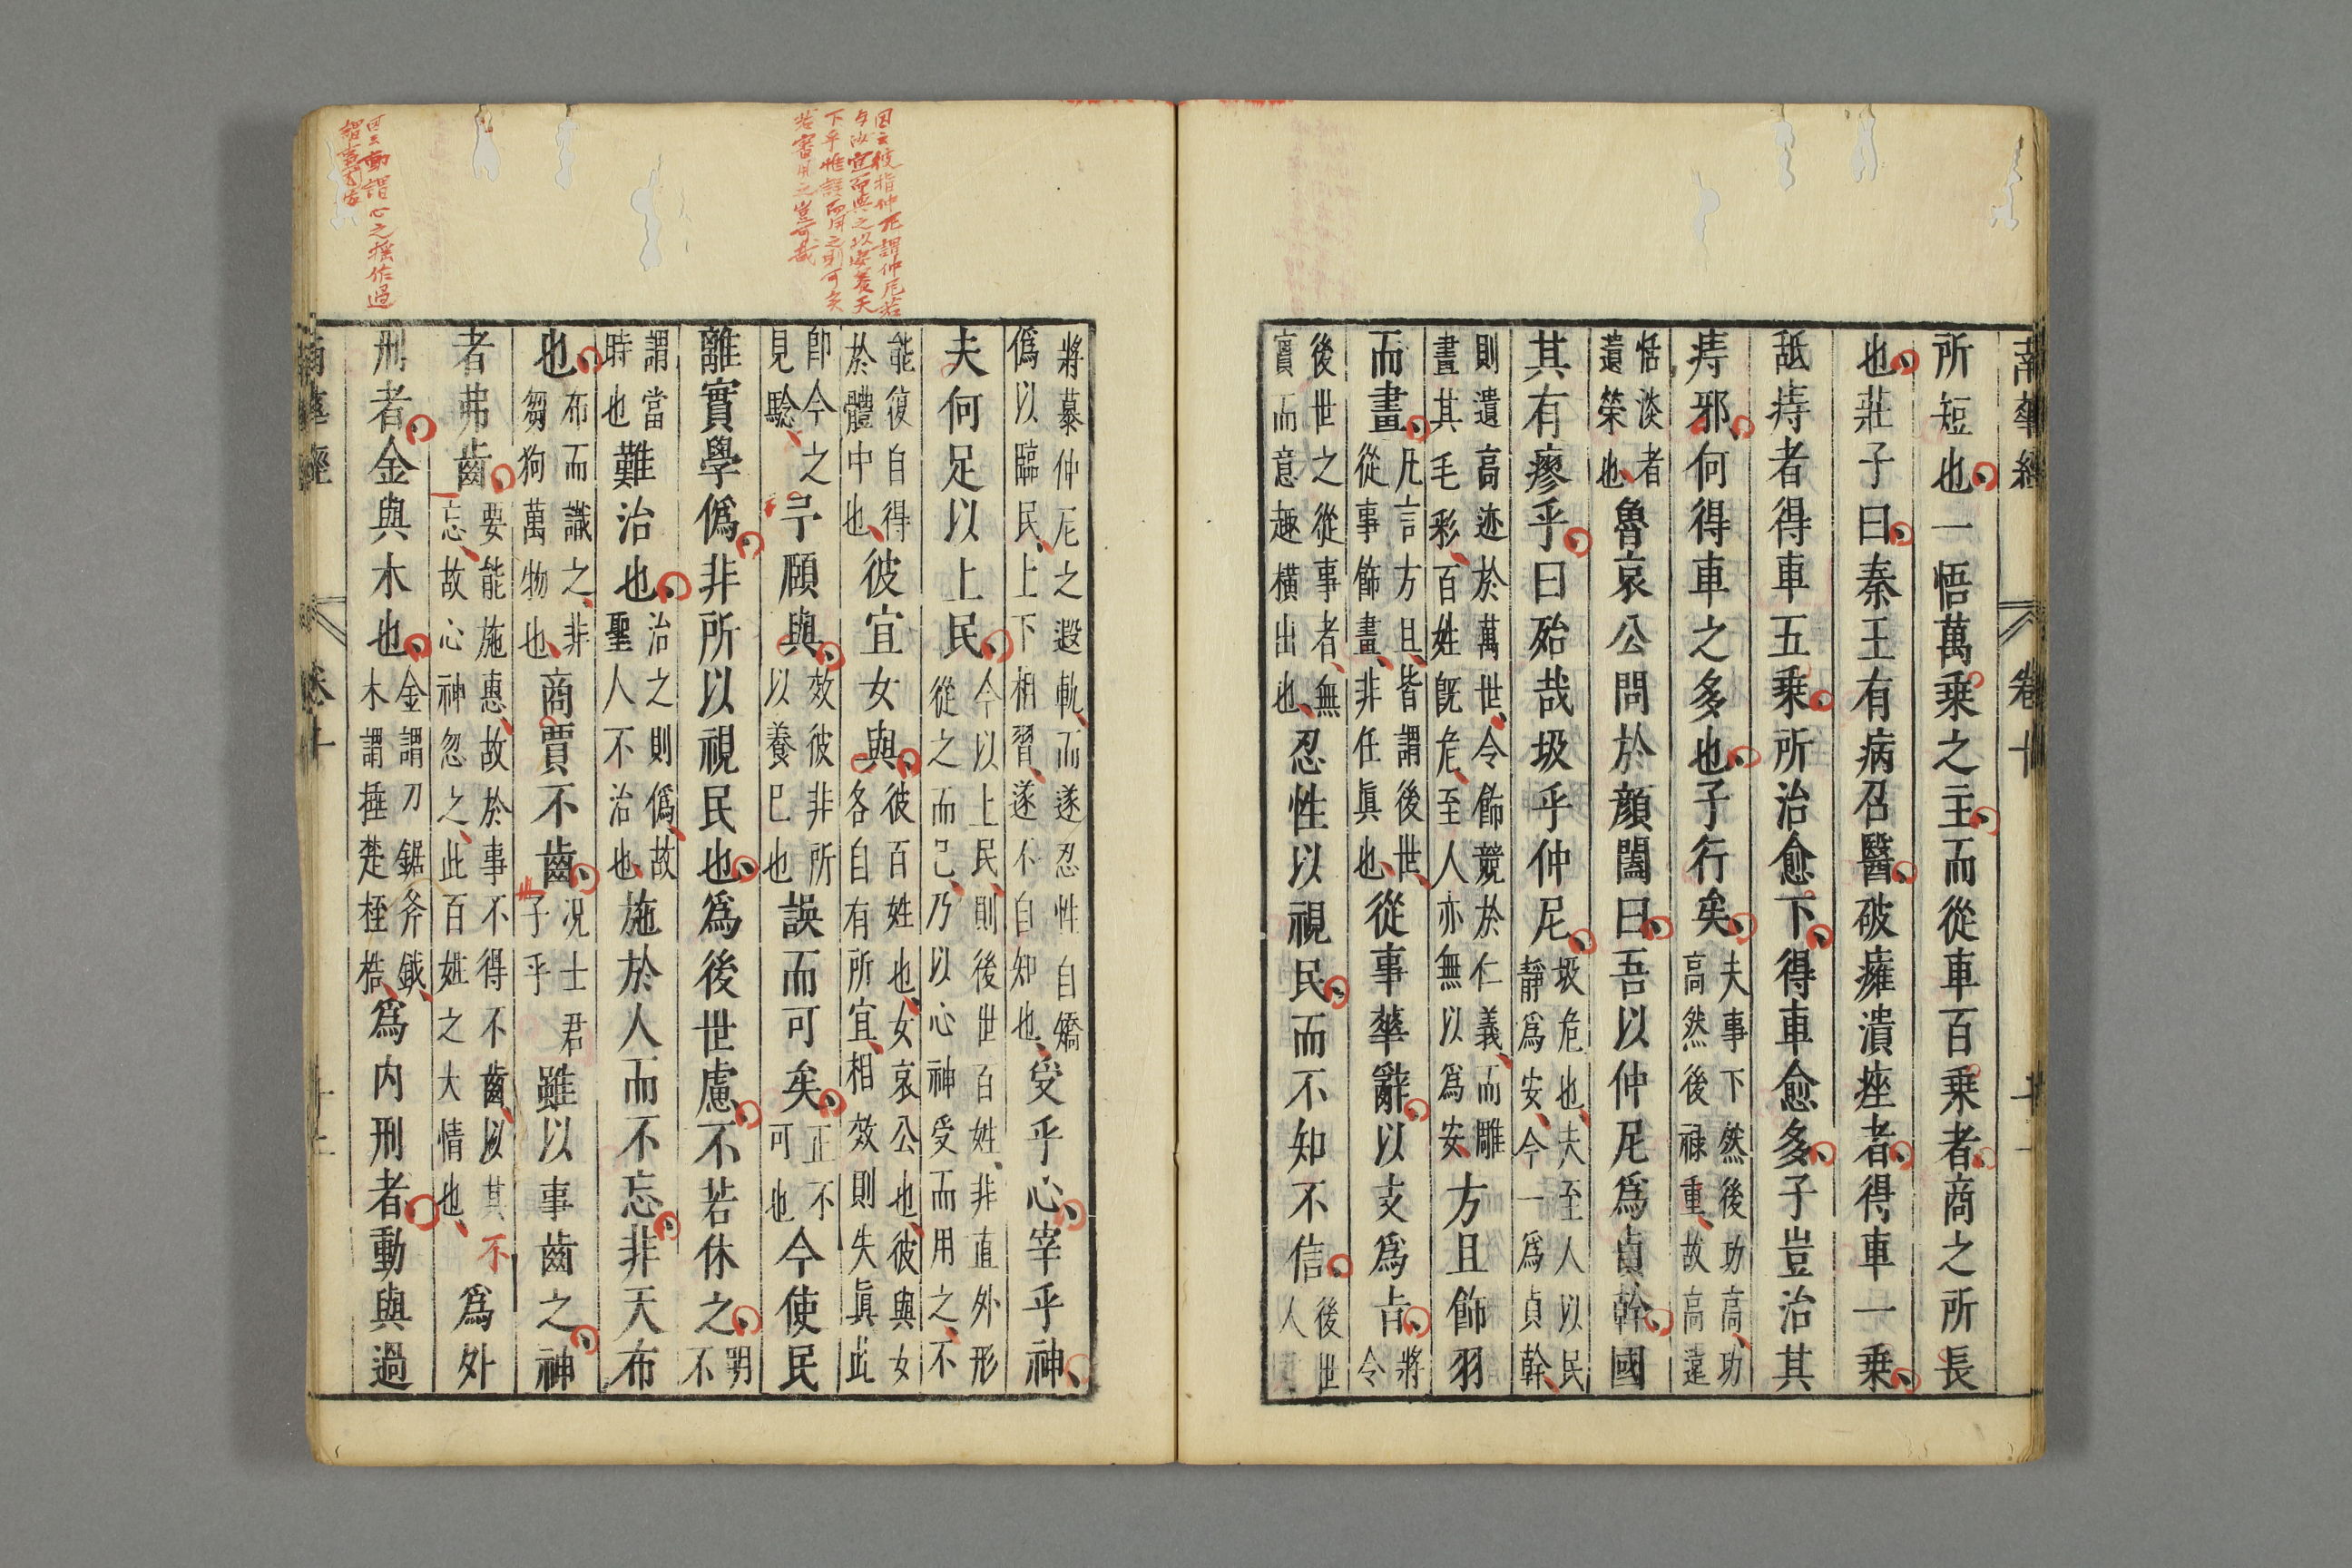 南華經 卷十
所短也一悟萬乗之主而從車百乗者商之所長
也莊子曰秦王有病召醫破癰潰痤者得車一乗
舐痔者得車五乗所治愈下得車愈多子豈治其
痔邪何得車之多也子行矣夫事下然後功高功
高然後禄重故高遠
恬淡者
遺榮也魯哀公問於顏闔曰吾以仲尼爲貞幹國
其有瘳乎曰殆哉圾乎仲尼圾危也夫至人以民
靜爲安今一爲貞幹
則遺高迹於萬世令飾競於仁義而雕
畫其毛彩百姓既危至人亦無以爲安方且飾羽
而畫凡言方且皆謂後世
從事飾畫非任眞也從事華辭以支爲旨將
令
後世之從事者無
實而意趣橫出也忍性以視民而不知不信後世
人
將慕仲尼之遐軌而遂忍性自矯
僞以臨民上下相習遂不自知也受乎心宰乎神
夫何足以上民今以上民則後世百姓非直外形
從之而已乃以心神受而用之不
能復自得
於體中也彼宜女與彼百姓也女哀公也彼與女
各自有所宜相效則失眞此
即今之
見驗予頤與效彼非所
以養已也誤而可矣正不
可也今使民
離實學僞非所以視民也爲後世慮不若休之明
不
謂當
時也難治也治之則僞故
聖人不治也施於人而不忘非天布
也布而識之非
芻狗萬物也商賈不齒况士君
子乎雖以事齒之神
者弗齒要能施惠故於事不得不齒以其不
忘故心神忽之此百姓之大情也爲外
刑者金與木也金謂刀鋸斧鉞
木謂捶楚桎梏爲内刑者動與過
南華經 卷十
因云彼指仲尼謂仲尼若
与汝宜而與之以安養天
下乎惟誤而用之則可矣
若審用之豈可哉
因云動謂心之揺作過